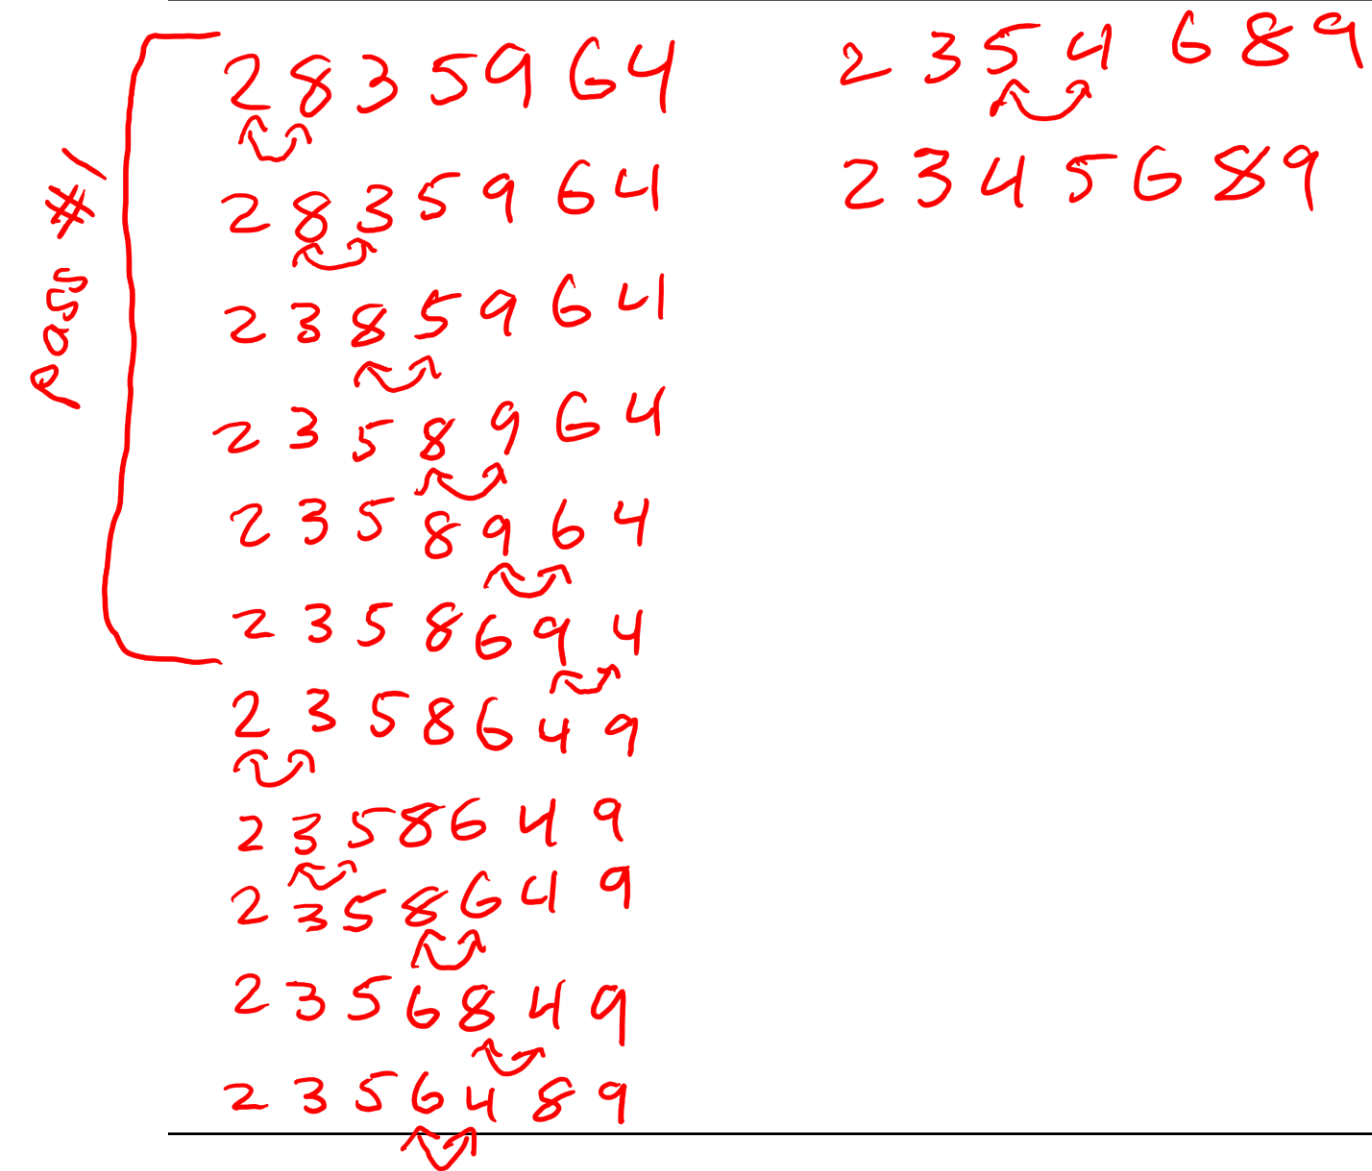 Pass #1
2 8 3 5 9 6 4
2 8 3 5 9 6 4
2 3 8 5 9 6 4
2 3 5 8 9 6 4
2 3 5 8 9 6 4
2 3 5 8 6 9 4
2 3 5 8 6 4 9
2 3 5 8 6 4 9
2 3 5 8 6 4 9
2 3 5 6 8 4 9
2 3 5 6 4 8 9
2 3 5 4 6 8 9
2 3 4 5 6 8 9